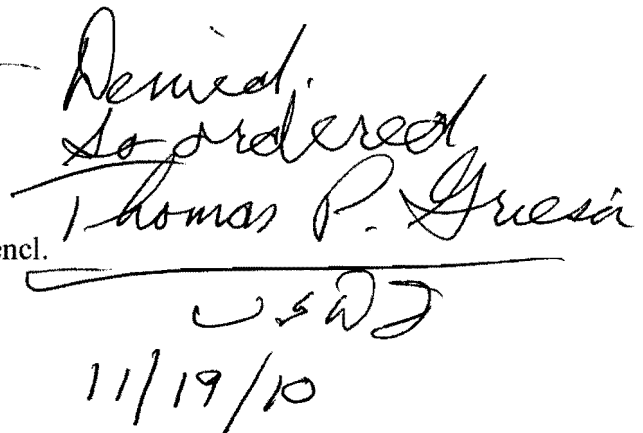 Denied.
So ordered
Thomas P. Griesa
encl.
USDJ
11/19/10